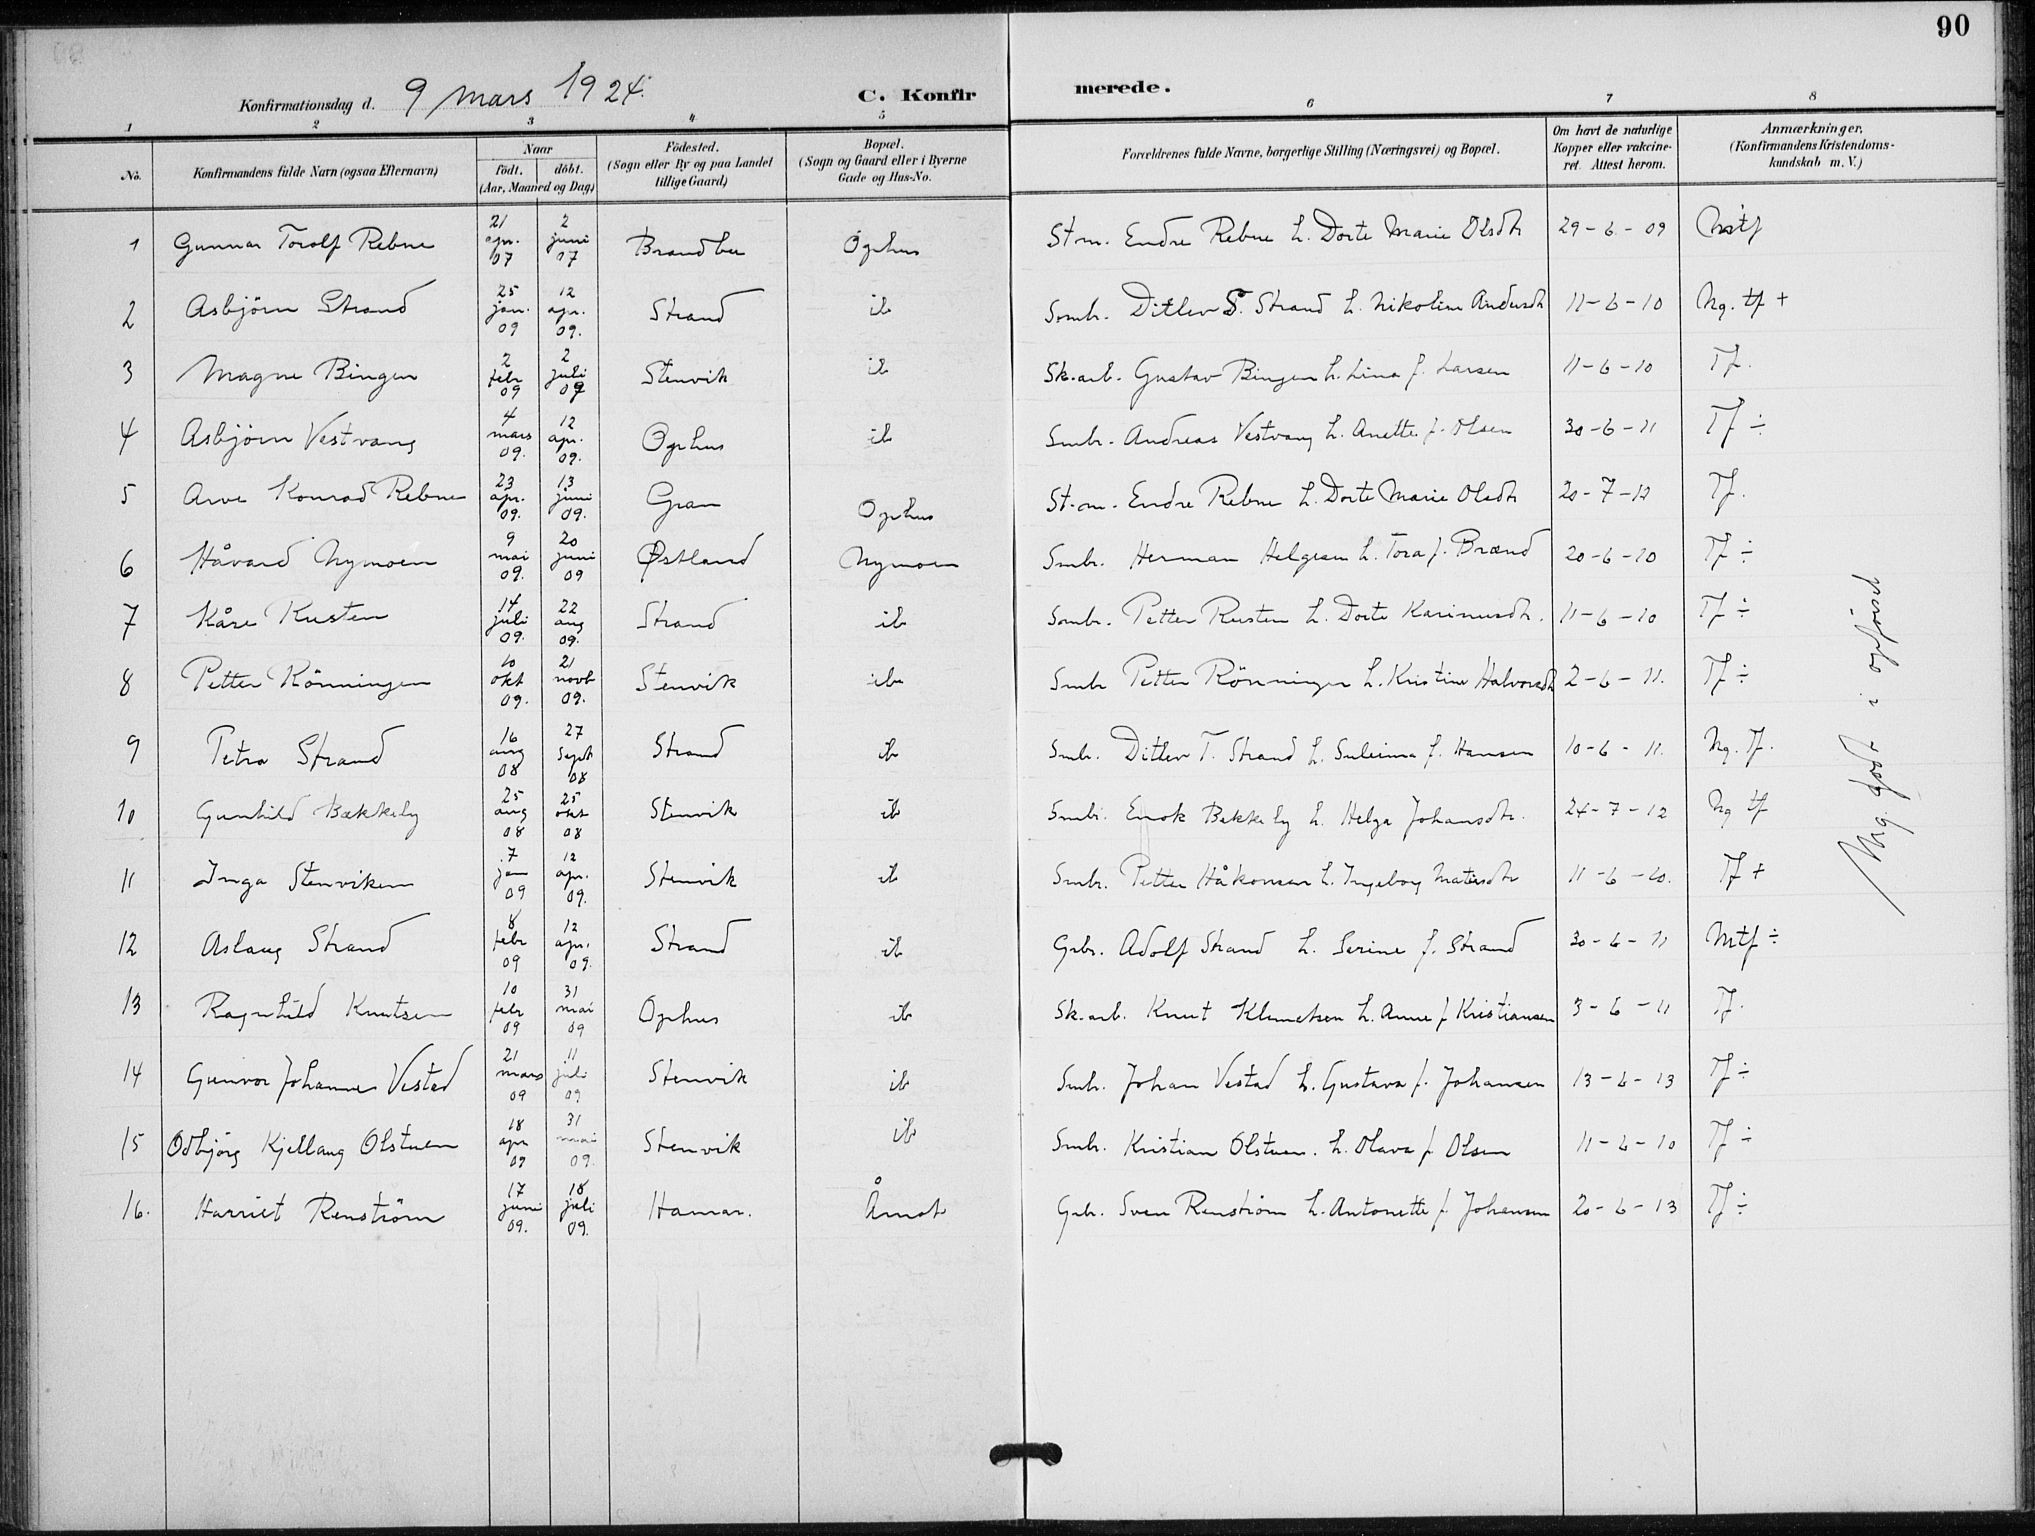 90
Konfirmationsdag d. 9 mars 1924. C. Konfirmerede.
1 2 3 4 5 6 7 8
No. Konfirmandens fulde Navn (ogsaa Efternavn) Naar födt, döbt. (Aar, Maaned og Dag) Födested. (Sogn eller By og paa Landet tillige Gaard) Bopæl. (Sogn og Gaard eller i Byerne Gade og Hus-No. Forældrenes fulde Navne, borgerlige Stilling (Næringsvei) og Bopæl. Om havt de naturlige Kopper eller vakcineret. Attest herom. Anmærkninger, (Konfirmandens Kristendomskundskab m. V.)
1 Gunnar Torolf Rebne 21 apr. 07 2 juni 07 Brandbu Ophus St.m. Endre Rebne h. Dorte Marie Olsdtr 29-6-09 Mtf
2 Asbjörn Strand 25 jan. 09 12 apr. 09. Strand ib Smbr. Ditlev T. Strand h. Nikoline Andersdtr 11-6-10 Mg. tf +
3 Magne Bingen 2 febr 09 2 juli 09 Stenvik ib Sk.arb. Gustav Bingen h. Lina f. Larsen 11-6-10 Tf.
4 Asbjörn Vestvang 4 mars 09. 12 apr. 09. Ophus ib Smbr. Andreas Vestvang h. Anette f. Olsen 30-6-11 Tf ÷
5 Arve Konrad Rebne 23 apr. 09. 13 juni 09. Gran Ophus St.m. Endre Rebne h. Dorte Marie Olsdtr 20-7-12 Tf.
6 Håvard Nymoen 9 mai 09. 20 juni 09 Østland Nymoen Smbr. Herman Helgesen h. Tora f. Brænd 20-6-10 Tf ÷
7 Kåre Rusten 14 juli 09. 22 aug 09. Strand ib Smbr. Petter Rusten h. Dorte Karinusdtr. 11-6-10 Tf ÷
8 Petter Rönningen 10 okt 09. 21 novb 09. Stenvik ib Smbr Petter Rönningen h. Kristine Halvorsdtr 2-6-11. Tf ÷
9 Petra Strand 16 aug 08 27 Sept 08 Strand ib Smbr. Ditlev T. Strand h. Suleima f. Hansen 10-6-11. Mg. Tf.
10 Gunhild Bækkeby 25 aug 08 25 okt 08 Stenvik ib Smbr. Enok Bækkeby h. Helga Johansdtr. 24-7-12 Mg tf
11 Inga Stenviken 7 jan 09 12 apr. 09. Stenvik ib Smbr. Petter Håkonsen h. Ingeborg Matisdtr 11-6-10. Tf +
12 Aslaug Strand 8 febr 09 12 apr. 09. Strand ib Grbr. Adolf Strand h. Serine f. Strand 30-6-11 Mtf ÷
13 Ragnhild Knutsen 10 febr 09 31 mai 09 Ophus ib Sk.arb. Knut Klemetsen h. Anne f Kristiansen 3-6-11 Tf.
14 Gunvor Johanne Vestad 21 mars 09 11 juli 09 Stenvik ib Smbr. Johan Vestad h. Gustava f. Johansen 13-6-13 Tf ÷
15 Odbjörg Kjellaug Olstuen 18 apr 09 31 mai 09. Stenvik ib Smbr. Kristian Olstuen. h. Olava f Olsen 11-6-10 Tf ÷
16. Harriet Renström 17 juni 09. 18 juli 09. Hamar. Åmot Grbr. Sven Renström h. Antonette f Johansen 20-6-13 Tf ÷
Mg. godt i opförsel